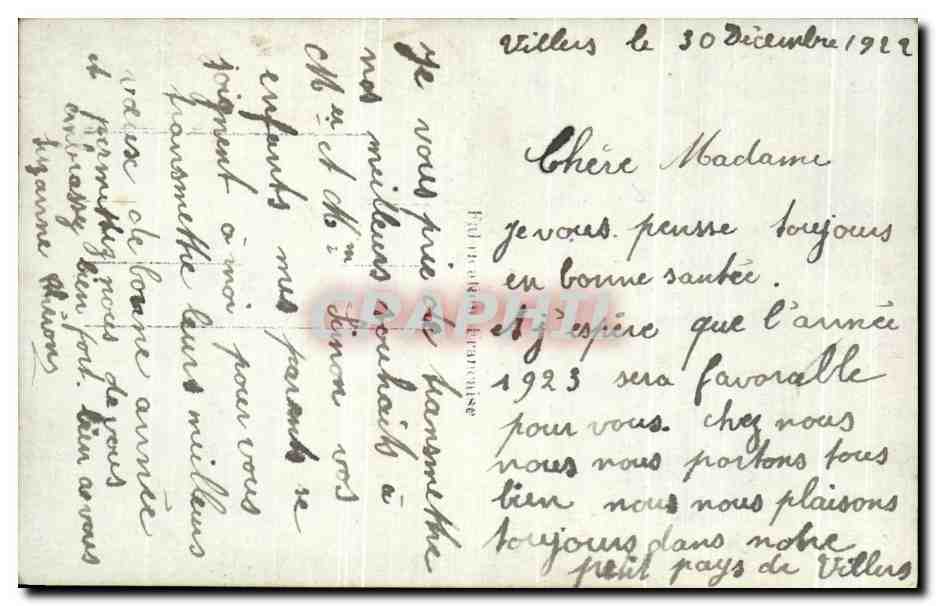 Villers le 30 Décembre 1922
Chère Madame
Je vous pensse toujours
en bonne santée.
et j'espère que l'année
1923 sera favorable
pour vous. chez nous
nous nous portons tous
bien nous nous plaisons
toujours dans notre
petit pays de Villers
Je vous prie de transmethe
nos meilleurs souhaits à
M et Mm Simon vos
enfants mes parents se
joignent à moi pour vous
transmethe leurs meilleurs
vœux de bonne année
et permettez nous de vous
embrassez bien fort. bien a vous
Suzanne
Fabrication Française
CPAPHIL